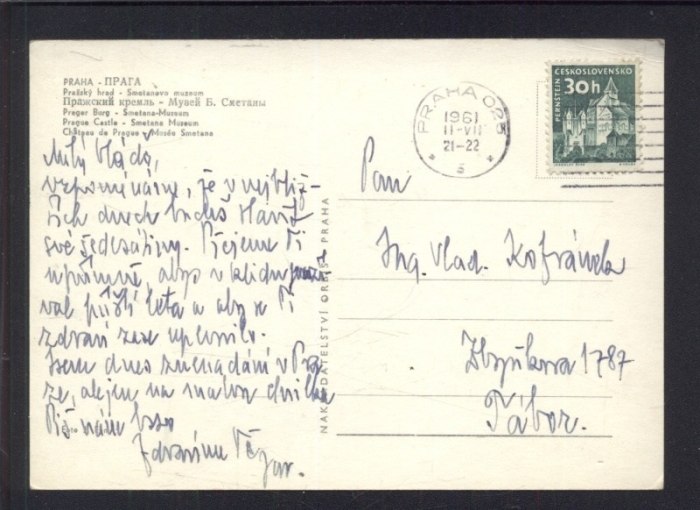 PRAHA - ПРАГА
Pražský hrad - Smetanovo museum
Пражский кремль - Музей Б. Сметаны
Prager Burg - Smetana-Museum
Prague Castle - Smetana Museum
Château de Prague - Musée Smetana
Milý Vláďo,
vzpomínáme, že v nejbliž-
ších dnech budeš slavit
své šedesátiny. Přejeme Ti
upřímně, abys v klidu
val příští léta a aby se Ti
zdraví zase upevnilo.
Jsem dnes v Pra-
ze, ale jen na malou chvilku
Piš nám
Zdravíme Tě
Jar.
NAKLADATELSTVÍ ORBIS PRAHA
PRAHA 025
1961
11-VII
21-22
ČESKOSLOVENSKO
PERNŠTEJN
30h
Pan
Ing. Vlad. Kofránek
Zbyňkova 1787
Tábor.